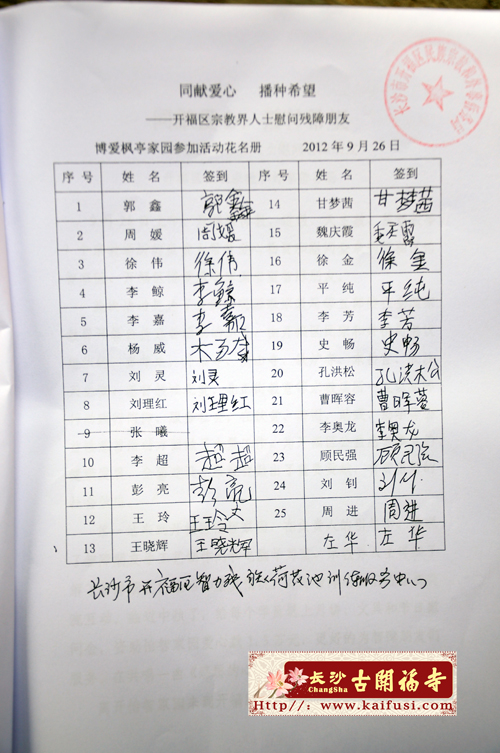 同献爱心 播种希望
——开福区宗教界人士慰问残障朋友
博爱枫亭家园参加活动花名册 2012 年 9 月 26 日
序 号 姓 名 签到 序 号 姓 名 签到
1 郭 鑫 郭鑫 14 甘梦茜 甘梦茜
2 周 媛 周媛 15 魏庆霞
3 徐 伟 徐伟 16 徐 金 徐金
4 李 鲸 李鲸 17 平 纯 平纯
5 李 嘉 李嘉 18 李 芳 李芳
6 杨 威 19 史 畅 史畅
7 刘 灵 刘灵 20 孔洪松 孔洪松
8 刘理红 刘理红 21 曹晖容 曹晖蓉
9 张 曦 22 李奥龙 李奥龙
10 李 超 超超 23 顾民强 顾民强
11 彭 亮 彭亮 24 刘 钊
12 王 玲 王玲 25 周 进 周进
13 王晓辉 王晓辉 左华 左华
长沙市开福区智力残疾人荷花池训练服务中心
长沙 古開福寺
ChangSha
Http://: www.kaifusi.com